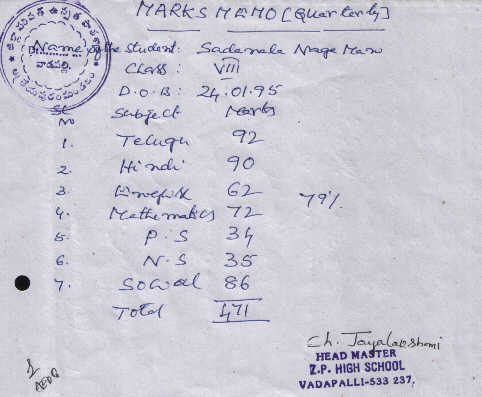 MARKS MEMO [Quarterly]
Name of the student: Sadanala Naga Mani
Class: VIII
D.O.B: 24.01.95
Sl No Subject Marks
1. Telugu 92
2. Hindi 90
3. English 62 79%
4. Mathematics 72
5. P.S 34
6. N.S 35
7. Social 86
Total 471
Ch. Jayalakshmi
HEAD MASTER
Z.P. HIGH SCHOOL
VADAPALLI-533 237.